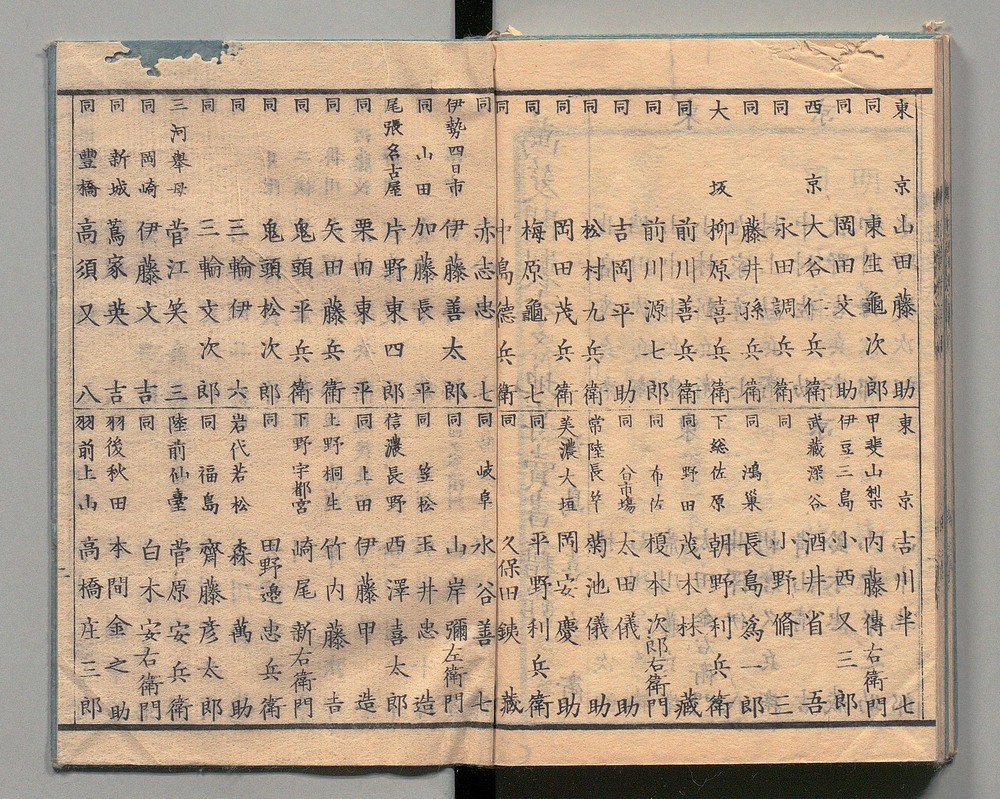 東京 山田藤助
同 東生龜次郎
同 岡田文助
西京 大谷仁兵衛
同 永田調兵衛
同 藤井孫兵衛
大坂 柳原喜兵衛
同 前川善兵衛
同 前川源七郎
同 吉岡平助
同 松村九兵衛
同 岡田茂兵衛
同 梅原龜七
同 中島德兵衛
東京 吉川半七
甲斐山梨 内藤傳右衛門
伊豆三島 小西又三郎
武藏深谷 酒井省吾
同 小野脩三
同 鴻巣 長島爲一郎
下総佐原 朝野利兵衛
同 野田 茂木林藏
同 布佐 榎本次郎右衛門
同 太田儀助
常陸長竿 菊池儀助
美濃大垣 岡安慶助
同 平野利兵衛
同 久保田鋏藏
同 赤志忠七
伊勢四日市 伊藤善太郎
同 山田 加藤長平
尾張名古屋 片野東四郎
同 栗田東平
同 矢田藤兵衛
同 鬼頭平兵衛
同 鬼頭松次郎
同 三輪伊六
同 三輪文次郎
三河擧母 菅江笑三
同 岡崎 伊藤文吉
同 新城 蔦家英吉
同 豐橋 高須又八
同 岐阜 水谷善七
同 山岸彌左衛門
同 笠松 玉井忠造
信濃長野 西澤喜太郎
同 上田 伊藤甲造
上野桐生 竹内藤吉
下野宇都宮 崎尾新右衛門
同 田野邊忠兵衛
岩代若松 森萬助
同 福島 齋藤彦太郎
陸前仙臺 菅原安兵衛
同 白木安右衛門
羽後秋田 本間金之助
羽前上山 高橋庄三郎